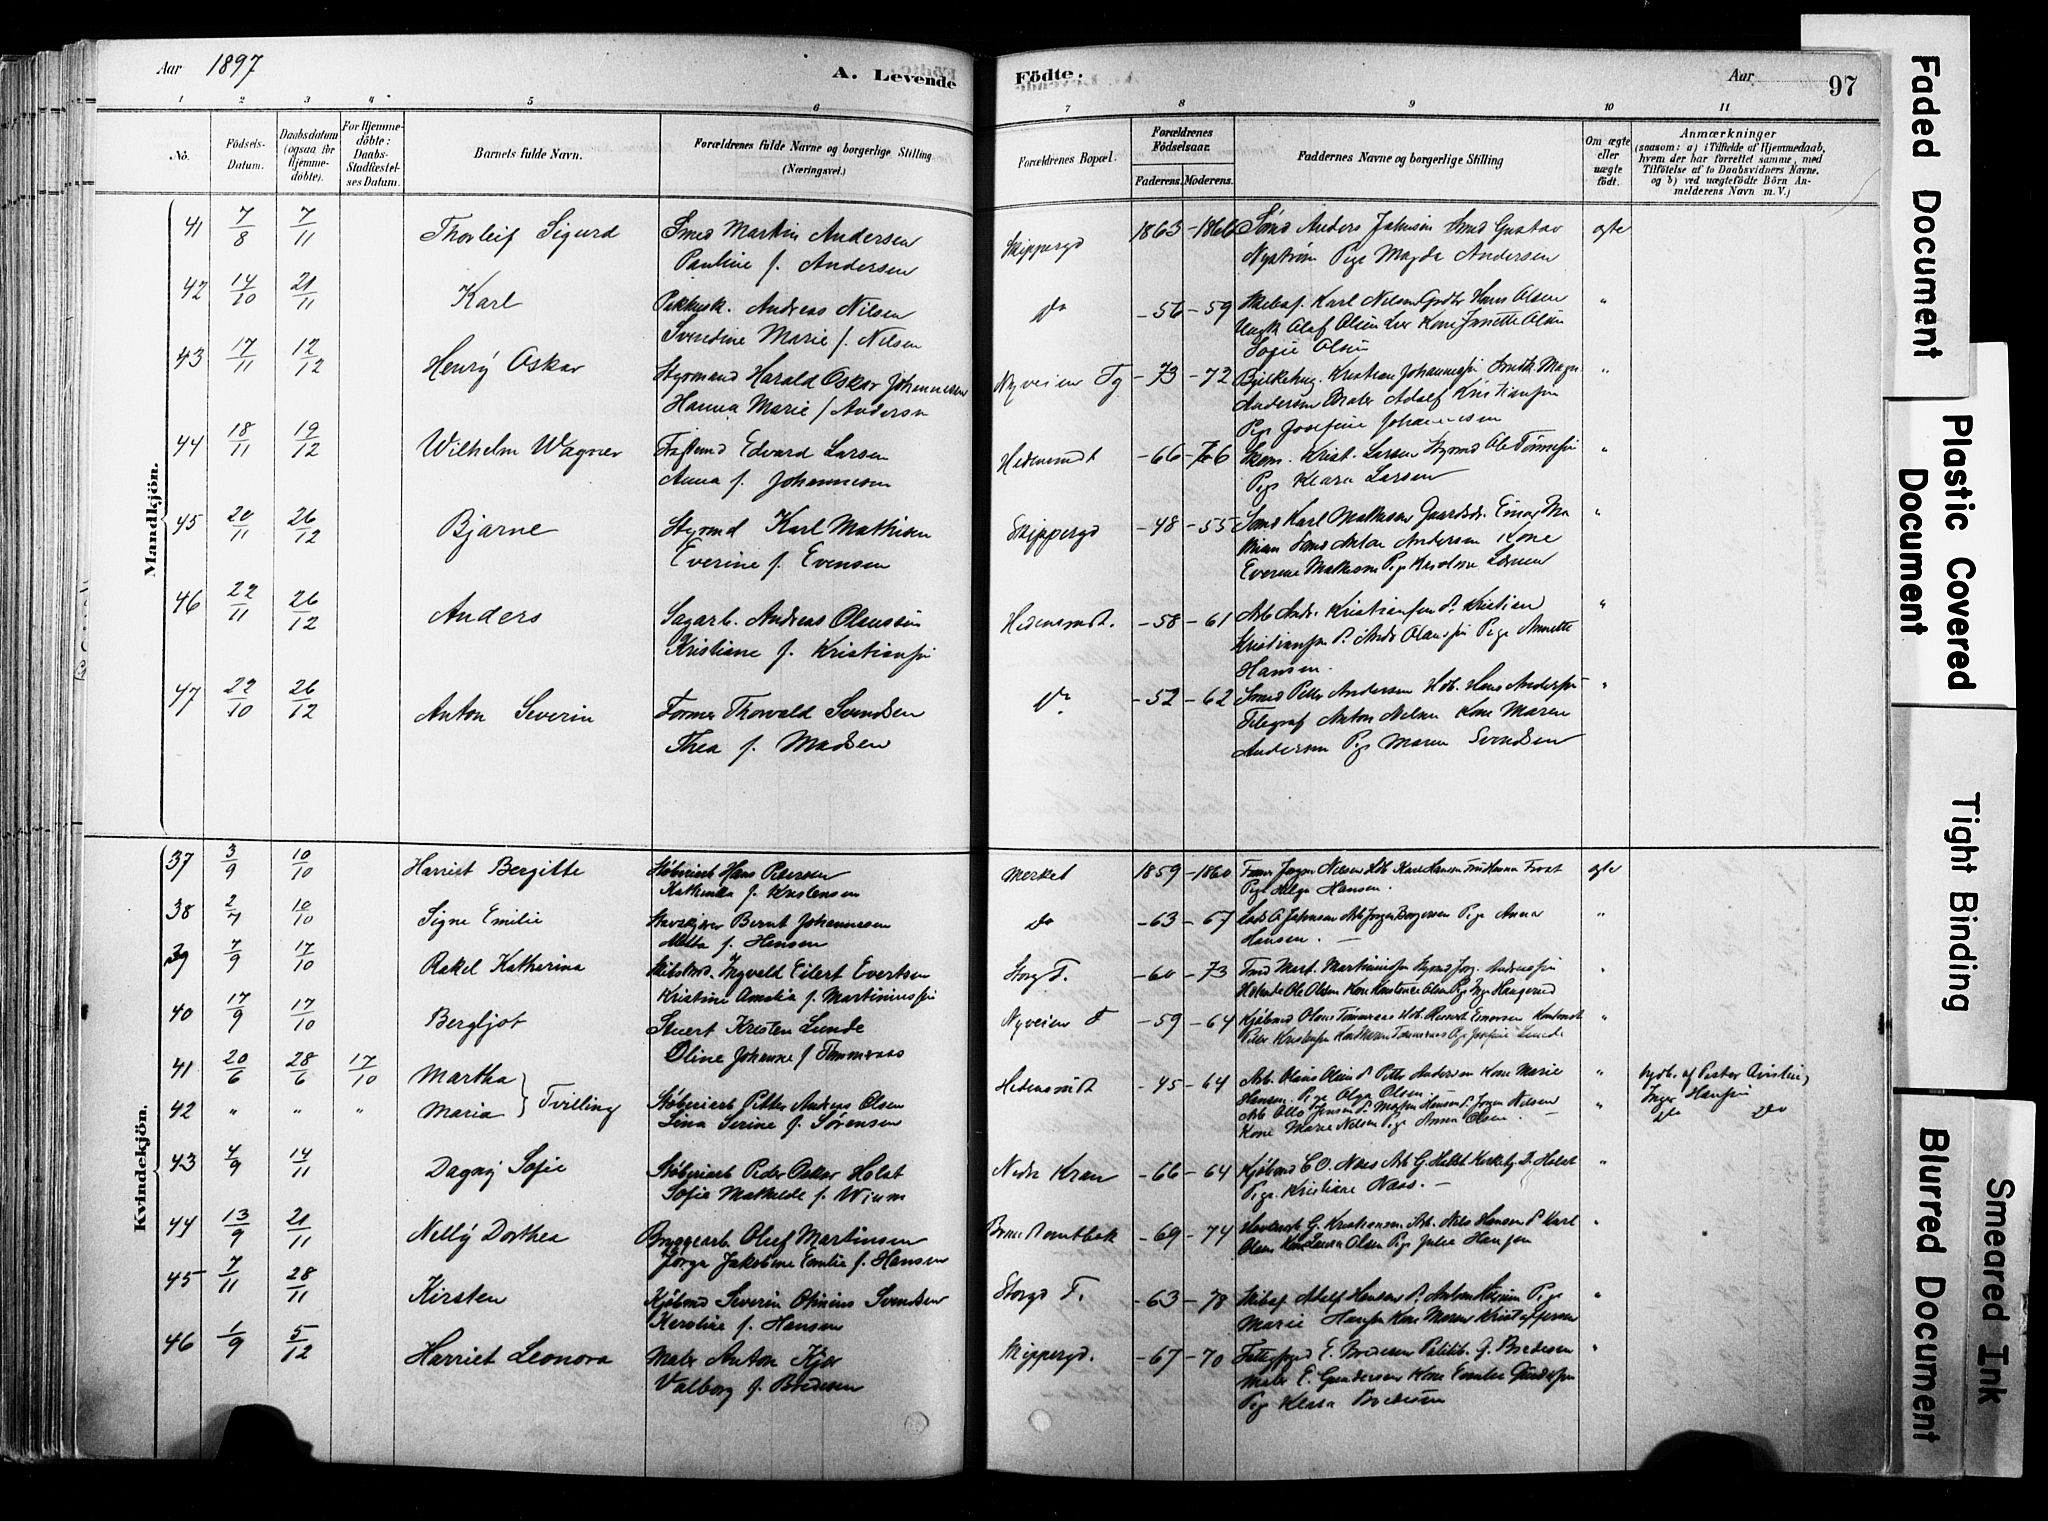 Aar 1897
A. Levende
Födte.
Aar
97
1 2 3 4 5 6 7 8 9 10 11
No.
Födsels-Datum.
Daabsdatum (ogsaa for Hjemmedöbte).
For Hjemmedöbte: Daabs-Stadfæstelses Datum.
Barnets fulde Navn.
Forældrenes fulde Navne og borgerlige Stilling (Næringsvei.)
Forældrenes Bopæl.
Forældrenes Födselsaar.
Faderens. Moderens.
Faddernes Navne og borgerlige Stilling
Om ægte eller uægte födt.
Anmærkninger
(saasom: a) i Tilfælde af Hjemmedaab, hvem der har forrettet samme, med Tilföielse af to Daabsvidners Navne, og b) ved uægtefödte Börn Anmelderens Navn m. V.)
Mandkjön.
41 7/8 7/11 Thorleif Sigurd Smed Martin Andersen Skippergd 1863 - 1866 Smed Anders Johnsen Smed Gustav ægte
Pauline f. Andersen Nyström Pige Magda Andersen
42 14/10 21/11 Karl Andreas Nilsen Do - 56 - 59 Karl Nilsen Hans Olsen "
Sverdine Marie f. Nilsen Olaf Olsen Kone Janette Olsen
Sofie Olsen
43 17/11 12/12 Henrÿ Oskar Styrmand Harald Oskar Johannessen Nyveien Tg - 73 - 72 Kristian Johannessen "
Hanna Marie f Andersen Andersen Maler Adolf Kristiansen
Pige Josefine Johannessen
44 18/11 19/12 Wilhelm Wagner Edvard Larsen Hedensmdt - 66 - 76 Krist. Larsen Styrmd Ole Tönnesen "
Anna f. Johannesen Pige Klara Larsen
45 20/11 26/12 Bjarne Styrmd Karl Mathisen Skippergd - 48 - 55 Smed Karl Mathisen Einar "
Everine f. Evensen Smed Anton Andersen Kone
Everine Mathisen Pige
46 22/11 26/12 Anders Sagarb. Andreas Olaussen Hedensmdt. - 58 - 61 Arb Andr. Kristiansen do Kristian "
Kristiane f. Kristiansen Kristiansen do Andr Olaussen Pige Annette
Hansen.
47 22/10 26/12 Anton Severin Former Thorvald Svendsen Do - 52 - 62 Smed Peter Andersen Hans Andersen "
Thea f. Madsen Telegraf Anton Nilsen Kone Maren
Andersen Pige Maren Svendsen
Kvindekjön.
37 3/9 10/10 Harriet Bergitte Støberiarb Hans Petersen Merket 1859 - 1860 Jørgen Nilsen Hansen ægte
Kathinka f. Kristensen Pige Helga Hansen.
38 10/10 Signe Emilie Bernt Johannesen Do - 63 - 67 Johnsen Arb Jørgen Borgersen Pige Anna "
f. Hansen Hansen.
39 7/9 17/10 Rakel Katherina Ingvald Eilert Evertsen Storg T. - 60 - 73 "
Kristine Amalia f. Martiniussen Ole Olsen Kone Konstance Olsen Pige Inga Haugerud
40 17/9 17/10 Bergljot Stuert Kristen Lunde Nyveien T - 59 - 64 Kjøbmd Olaus Tommeraas "
Oline Johanne f Tommeraas Peter Kristensen Pige Josefine Lunde
41 20/6 28/6 17/10 Martha Hedensmdt - 45 - 64 Arb. Olaus Olsen do Petter Andersen Kone Marie " hjdb. af
Hansen. Pige Olga Olsen. Inger Hansen
42 " " " Maria } Tvilling Støberiarb Petter Andreas Olsen Arb Otto Jensen do Martin Hansen do Jørgen Nilsen " Do Do
Lina Serine f. Sørensen Kone Marie Nilsen Pige Anna Olsen.
43 4/9 14/11 Dagnÿ Sofie Støberiarb Peder Oskar Holst Nedre Kran - 66 - 64 Kjøbmd C O. Naas Arb G. Holst Holst "
Sofie Mathilde f. Wium Pige Kristiane Naas.
44 13/9 21/11 Nellÿ Dorthea Bryggearb Oluf Martinsen - 69 - 74 G. Kristiansen Arb. Nils Hansen do Karl "
Jørga Jakobine Emilie f. Hansen Olsen Kone Laura Olsen Pige Julie Hansen
45 7/11 28/11 Kirsten Kjöbmd Severin Otinius Svendsen Storgd T. - 63 - 78 Adolf Hansen do Anton Pige "
Karoline f. Hansen Marie Hansen Kone Maren Kristoffersen
46 1/9 5/12 Harriet Leonora Maler Anton Kjær Skippergd. - 67 - 70 E. Bredesen G. Bredesen "
Valborg f. Bredesen Maler E. Gundersen Kone Emilie Gundersen
Pige Klara Bredesen
Faded Document
Plastic Covered Document
Tight Binding
Blurred Document
Smeared Ink